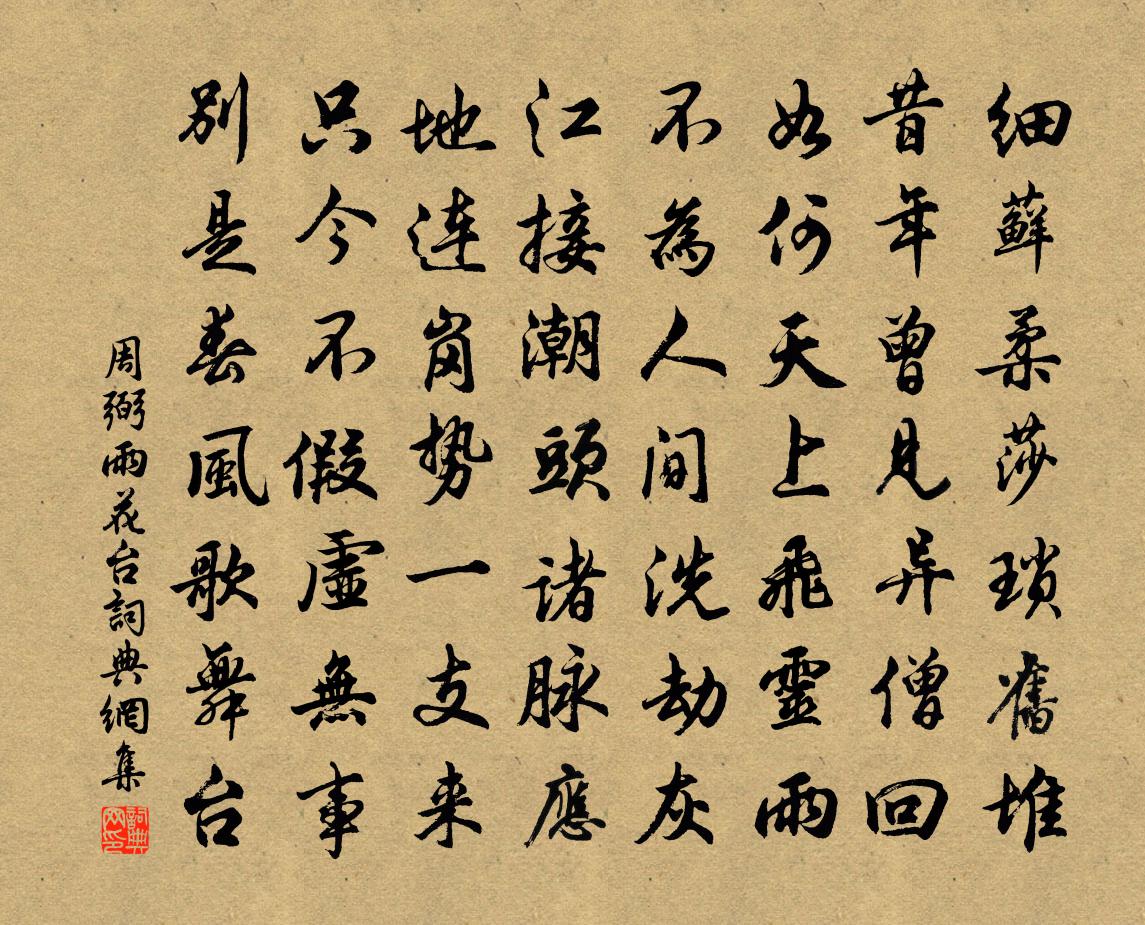 细蘚柔莎瑣舊堆
昔年曾見异僧回
如何天上飛靈雨
不為人间洗劫灰
江接潮頭诸脉應
地连崗势一支来
只今不假虛無事
别是春風歌舞台
周弼雨花台詞典網集
詞典网印